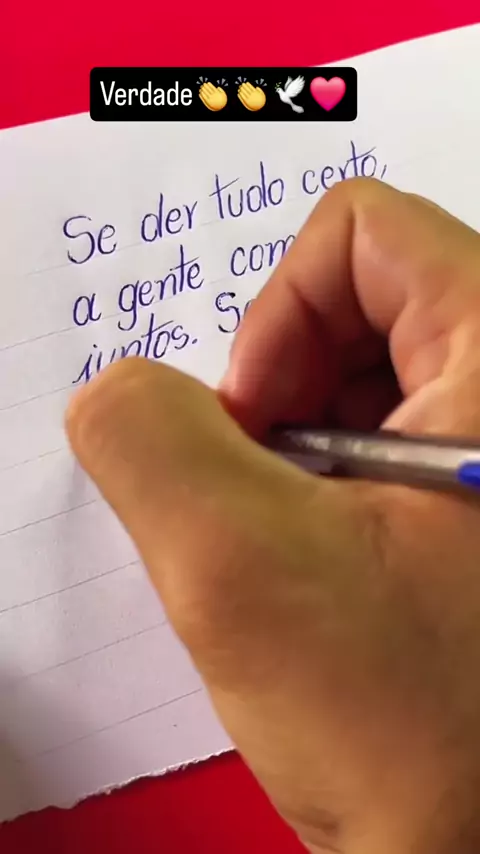 Verdade👏👏🕊️❤️
Se der tudo certo,
a gente
juntos.